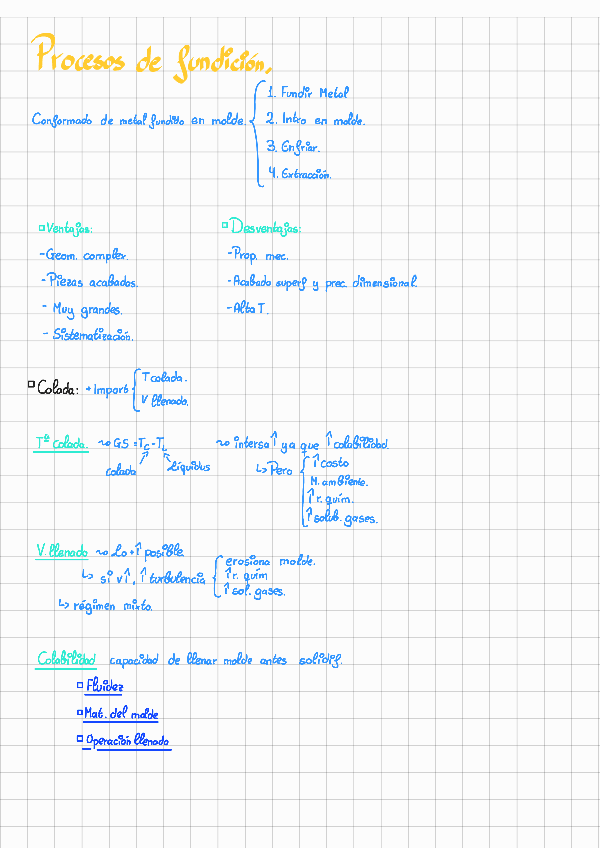 Procesos de fundición.
Conformado de metal fundido en molde.
1. Fundir Metal
2. Intro en molde.
3. Enfriar.
4. Extracción.
Ventajas:
- Geom. complex.
- Piezas acabados.
- Muy grandes.
- Sistematización.
Desventajas:
- Prop. mec.
- Acabado superf y prec. dimensional.
- Alta T.
Colada: → import
T colada.
V llenado.
Tª colada. ~ GS = Tc - TL
colada
líquidus
~ intersa ↑ ya que ↑ colabilidad.
↳ Pero
↑ costo
M. ambiente.
↑ r. quím.
↑ solub. gases.
V. llenado ~ Lo + ↑ posible
↳ si v↑, ↑ turbulencia
erosiona molde.
↑ r. quím
↑ sol. gases.
↳ régimen mixto.
Colabilidad capacidad de llenar molde antes solidif.
Fluidez
Mat. del molde
Operación llenado